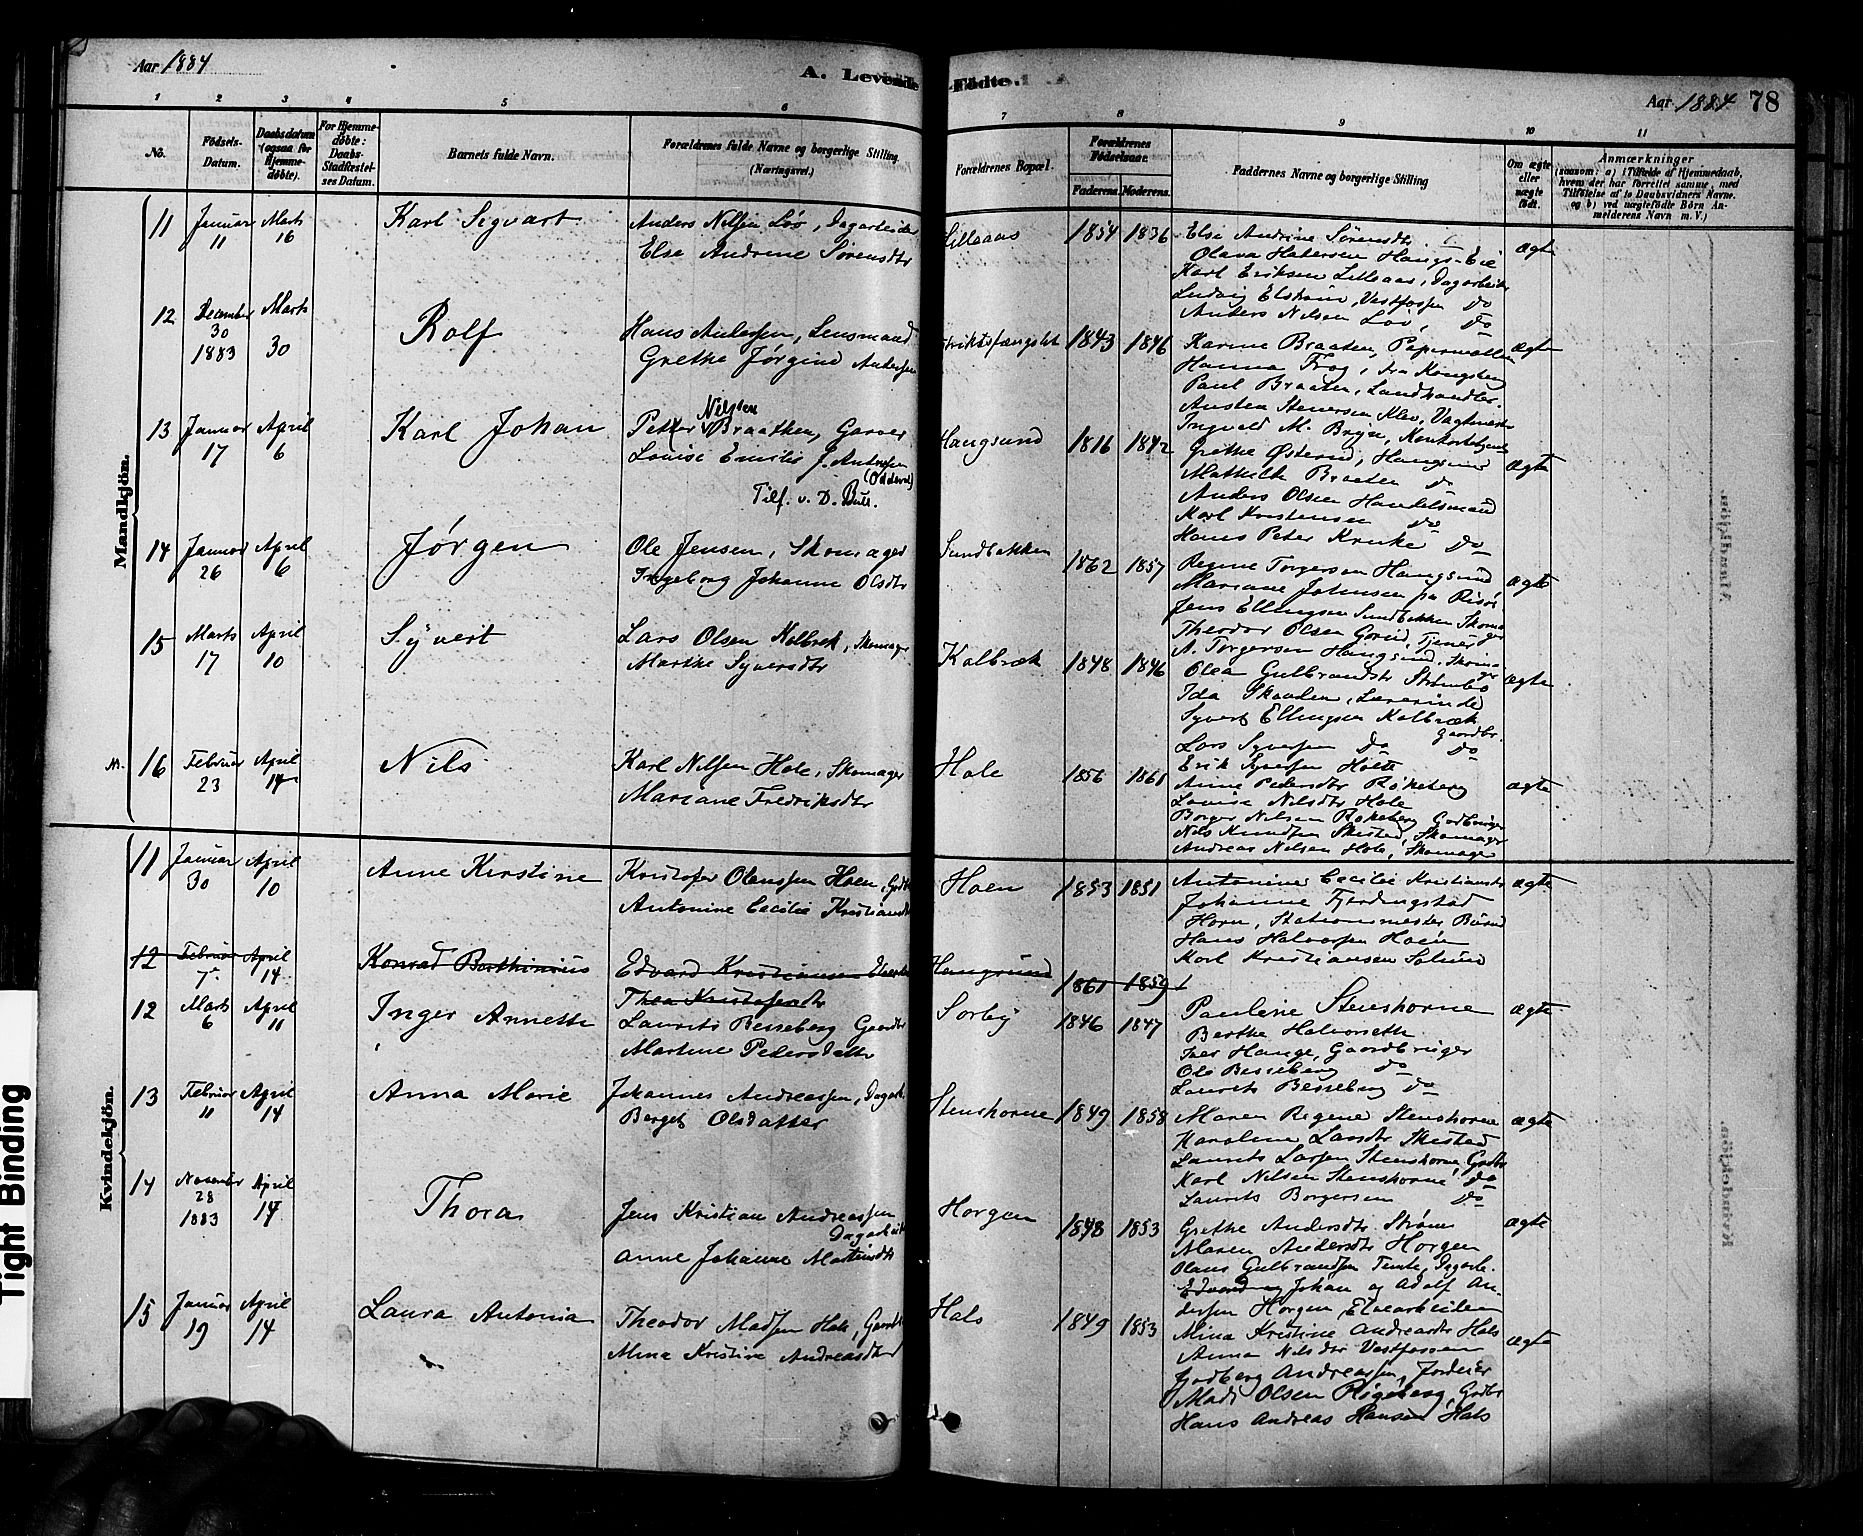 Aar 1884
A. Levende-Fødte.
Aar 1884. 78
1 2 3 4 5 6 7 8 9 10 11
No.
Fødsels-Datum.
Daabsdatum (ogsaa for Hjemmedøbte).
For Hjemmedøbte: Daabs-Stadfæstelses Datum.
Barnets fulde Navn.
Forældrenes fulde Navne og borgerlige Stilling (Næringsvei.)
Forældrenes Bopæl.
Forældrenes Fødselsaar.
Faderens. Moderens.
Faddernes Navne og borgerlige Stilling
Om ægte eller uægte født.
Anmærkninger
(saasom: a) i Tilfælde af Hjemmedaab, hvem der har forrettet samme, med Tilføielse af to Daabsvidners Navne. og b) ved uægtefødte Børn Anmelderens Navn m. V.)
Mandkjøn.
11 Januar 11 Marts 16 Karl Sigvart
Anders Nilsen Løv, Dagarbeider
Else Andrine Sørensdtr
Lillaas 1854 1836
Else Andrine Sørensdtr
Olava Halversen Haugs-Eie
Karl Eriksen Lillaas, Dagarbeider
Ludvig Elstrøm, Vestfossen do
Anders Nilsen Løv, do
ægte
12 December 30 1883 Marts 30 Rolf
Hans Andersen, Lensmand
Grethe Jørgine Andersen
1843 1846
Karine Braaten, Papirmøllen
Hanna Frog, fra Kongsberg
Paul Braaten, Landhandler
Austen Stenersen Klev,
Ingvald M. Bryn, Kontorbetjent
ægte
13 Januar 17 April 6 Karl Johan
Petter Nilsen Braathen, Garver
Louise Emilie J. Andersen
(Oddevol)
Tilf. v. D. Bull.
Haugsund 1816 1842
Grethe Østerud, Haugsund
Mathilde Braaten do
Anders Olsen Handelsmand
Karl Kristensen do
Hans Peter Kruke do
ægte
14 Januar 26 April 6 Jørgen
Ole Jensen, Skomager
Ingeborg Johanne Olsdtr
Sundbakken 1862 1857
Regine Torgersen Haugsund
Mariane Johnsen fra Risør
Jens Ellingsen Sundbakken Skomager
Theodor Olsen Gorud, Tjener
A. Torgersen Haugsund, Skomager
ægte
15 Marts 17 April 10 Syvert
Lars Olsen Kolbræk, Skomager
Marthe Syversdtr
Kolbræk 1848 1846
Olea Gulbrandsdtr Strømbo
Ida Skaaden, Lærerinde
Syvert Ellingsen Kolbræk Gaardbr.
Lars Syversen do do
Erik Syversen Holte
ægte
16 Februar 23 April 14 Nils
Karl Nilsen Hole, Skomager
Mariane Fredriksdtr
Hole 1856 1861
Anne Pedersdtr Røkeberg
Louise Nilsdtr Hole
Borger Nilsen Røkeberg Gaardbruger
Nils Knudsen Skistad, Skomager
Andreas Nilsen Hole, Skomager
ægte
Kvindekjøn.
11 Januar 30 April 10 Anne Kirstine
Kristofer Olaussen Hoen, Gaardbr
Antonine Cecilie Kristiansdtr
Hoen 1853 1851
Antonine Cecilie Kristiansdtr
Johanne Fjerdingstad
Horn, Stationsmester Burud
Hans Halvorsen Hoen
Karl Kristiansen Solum
ægte
12 Februar 7 April 14 Konrad Barthinius
Edvard Kristiansen
Thea Kristofersdtr
Haugsund 1861 1859
12 Marts 6 April 11 Inger Annette
Laurits Besseberg Gaardbr
Martine Pedersdatter
Sorby 1846 1847
Pauline Stenshorne
Berthe Halvorseth
Iver Hauge, Gaardbruger
Ole Besseberg do
Laurits Besseberg do
ægte
13 Februar 11 April 14 Anna Marie
Johannes Andreassen, Dagarb.
Berget Olsdatter
Stenshorne 1849 1858
Maren Regine Stenshorne
Karoline Larsdtr Skistad
Laurits Larsen Stenshorne, Gaardbr
Karl Nilsen Stenshorne, do
Laurits Borgersen do
ægte
14 November 28 1883 April 14 Thora
Jens Kristian Andreassen Dagarbeid
Anne Johanne Mortensdtr
Horgen 1848 1853
Grethe Andersdtr Strøm
Maren Andersdtr Horgen
Olaus Gulbrandsen Temte, Dagarb.
Edvard og Johan og Adolf Andersen Horgen, Elvearbeidere
ægte
15 Januar 19 April 14 Laura Antonia
Theodor Madsen Hals, Gaardbr
Mina Kristine Andreasdtr
Hals 1849 1853
Mina Kristine Andreasdtr Hals
Anna Nilsdtr Vestfossen
Fredberg Andreassen, Jordeier
Mads Olsen Røgeberg, Gaardbr
Hans Andreas Hansen, Hals
ægte
Tight Binding